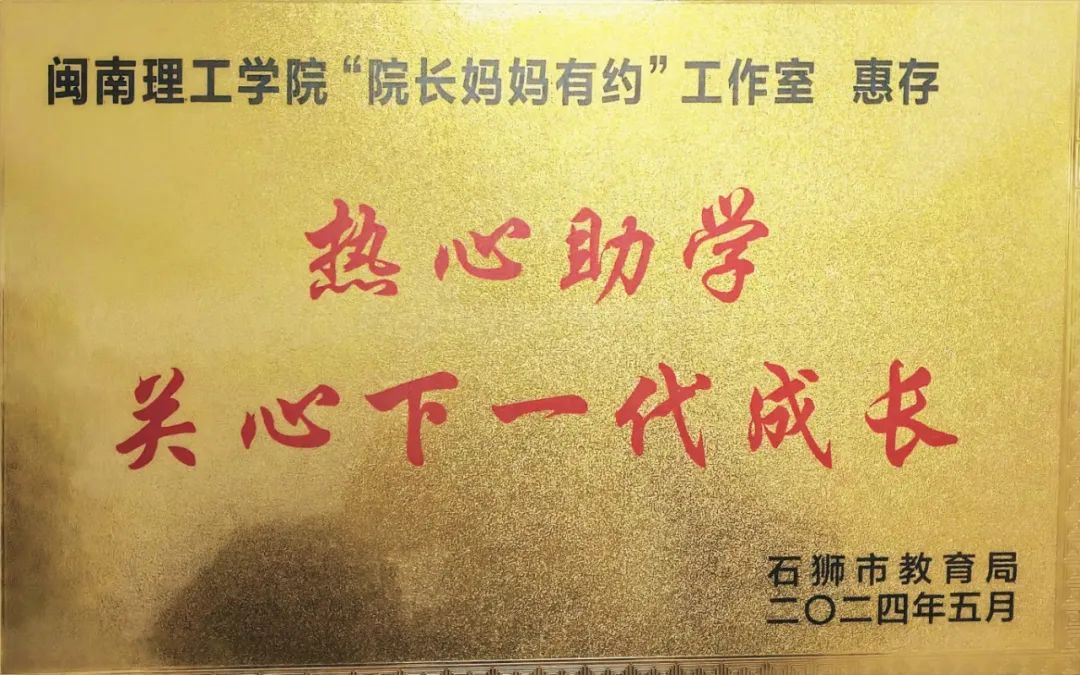 闽南理工学院“院长妈妈有约”工作室 惠存
热心助学
关心下一代成长
石狮市教育局
二〇二四年五月